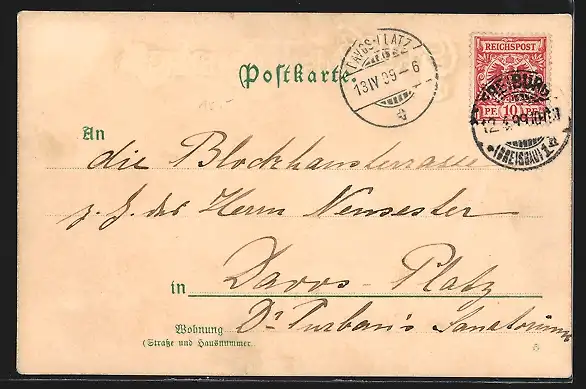 Postkarte.
DAVOS-PLATZ
13 IV 99-6
REICHSPOST
PF. 10 PF.
FREIBURG
12.4.99.10-11V
(BREISGAU) 1
An
die Blockhausterrasse
z. H. des Herrn Neusester
in Davos-Platz
Wohnung Dr. Turban's Sanatorium
(Straße und Hausnummer.